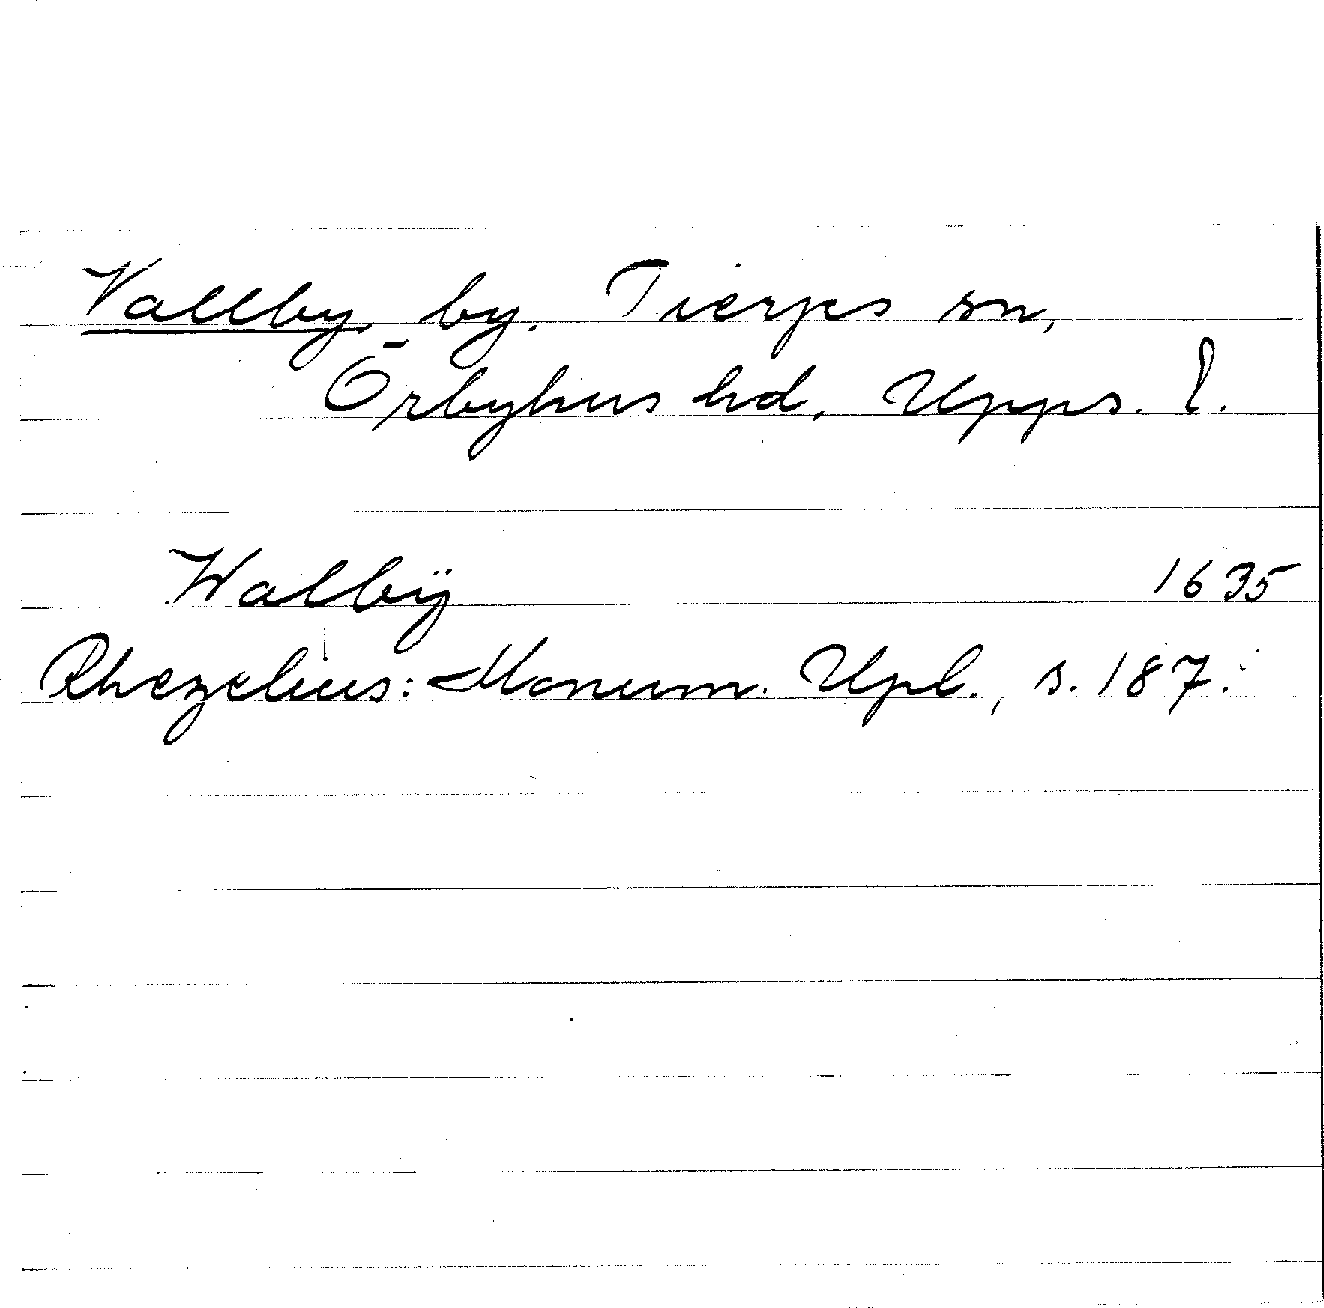 Vallby by. Tierps sn,
Örbyhus hd, Upps. l.
Walbÿ 1635
Rhezelius: Monum. Upl., s. 187.